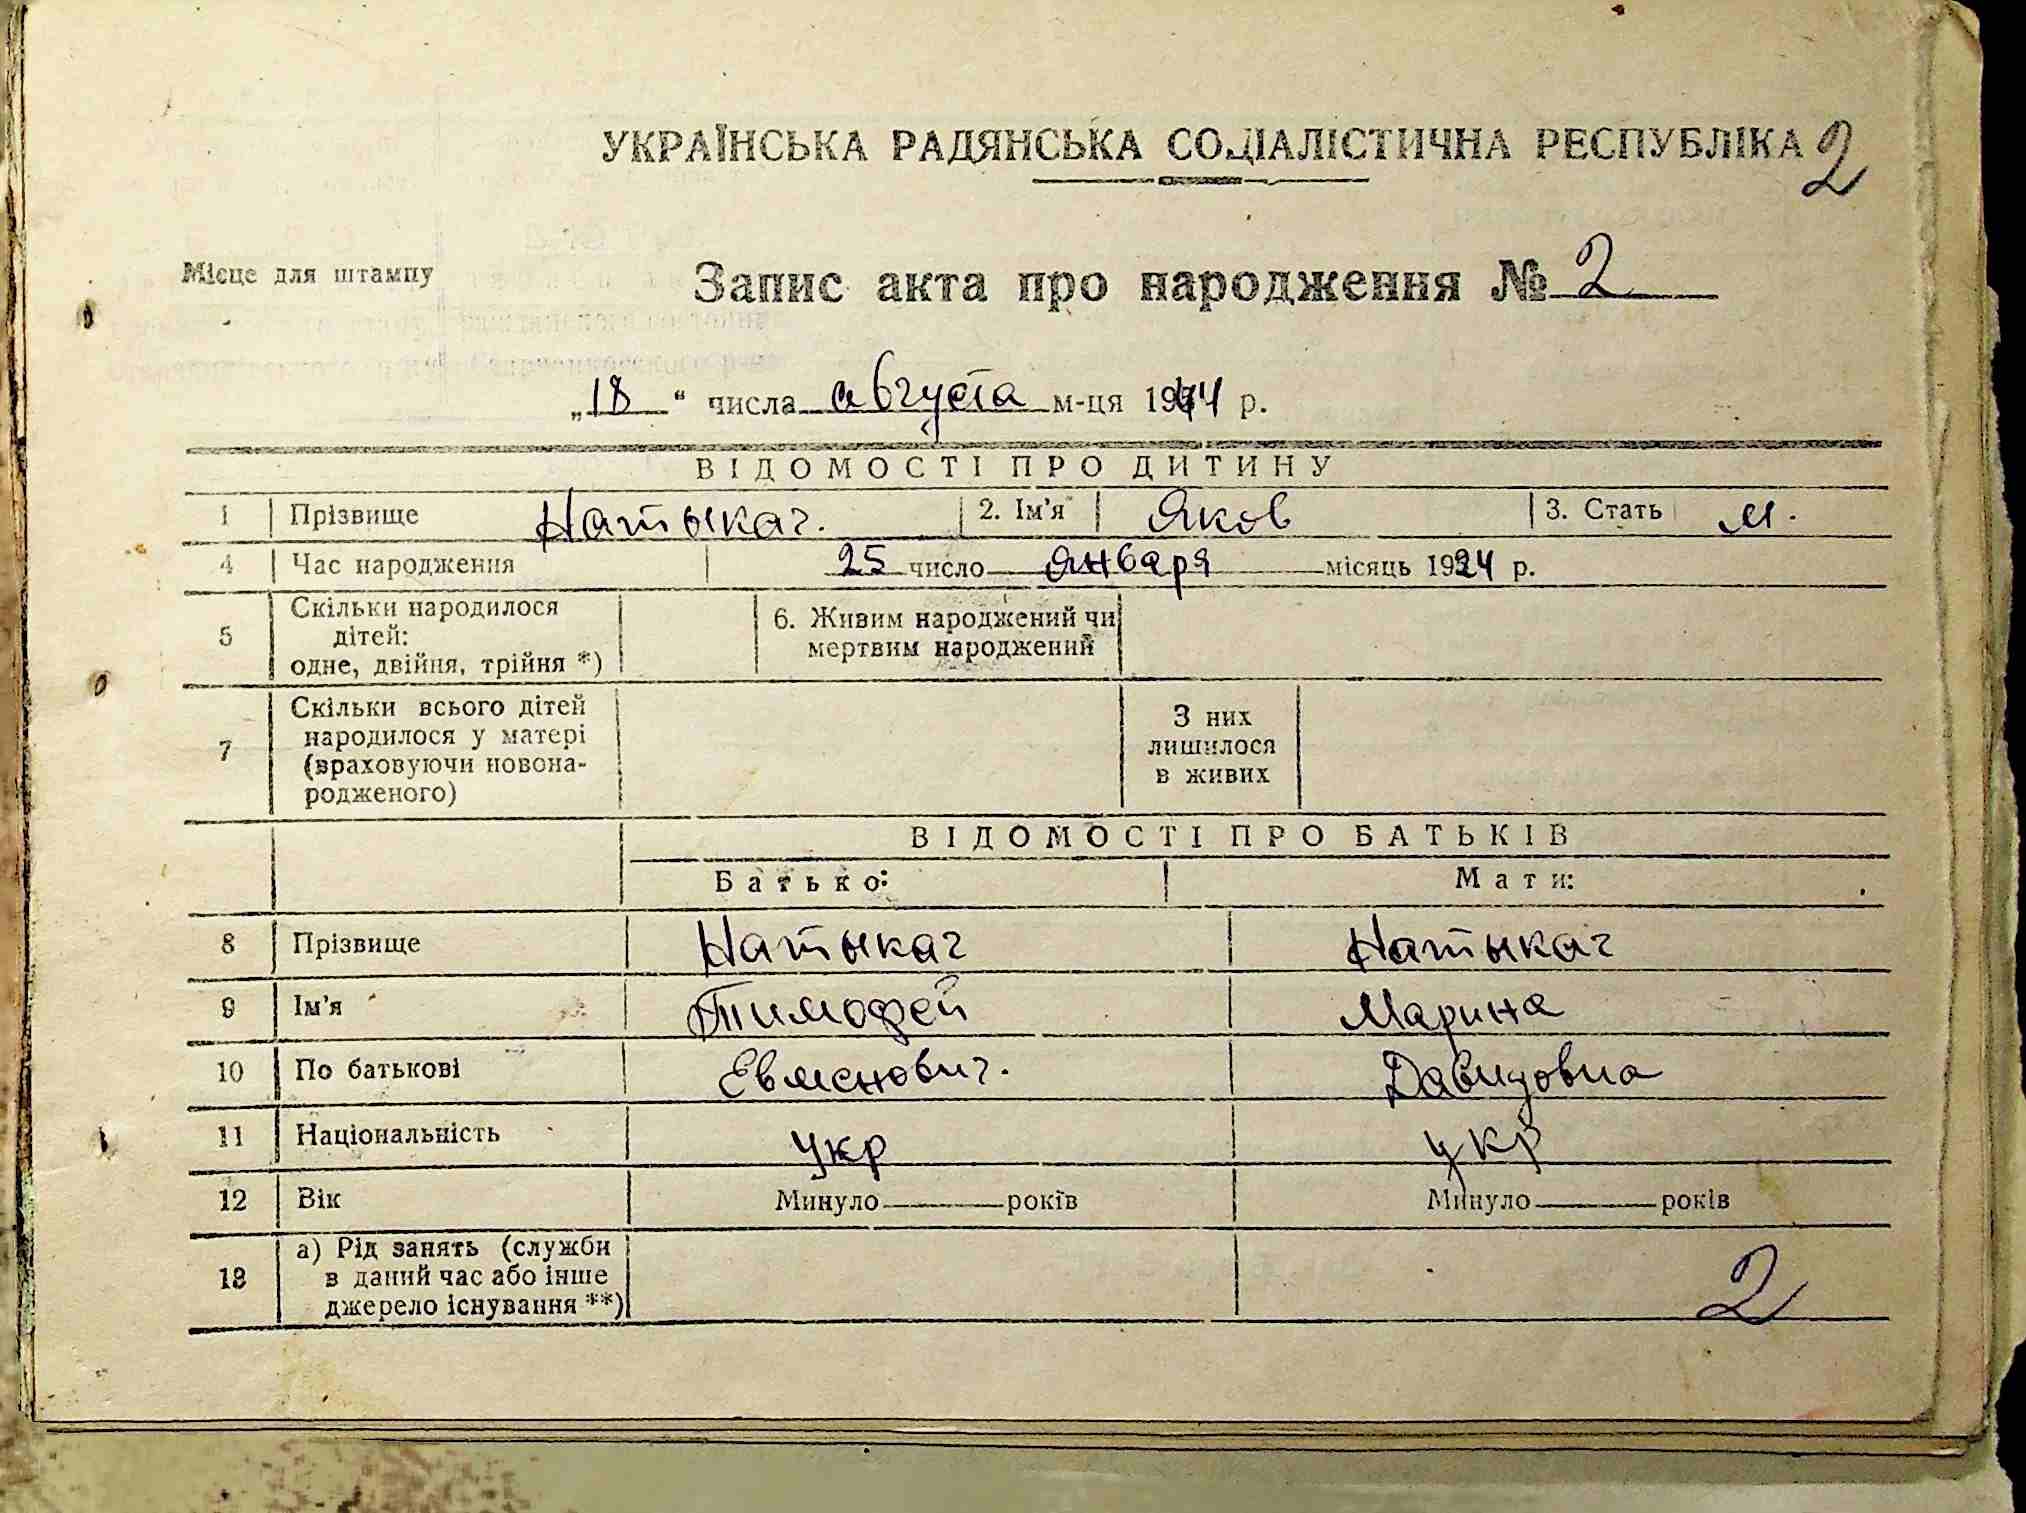 УКРАЇНСЬКА РАДЯНСЬКА СОЦІАЛІСТИЧНА РЕСПУБЛІКА 2
Місце для штампу
Запис акта про народження № 2
„18“ числа августа м-ця 1944 р.
ВІДОМОСТІ ПРО ДИТИНУ
1 Прізвище Натыкач. 2. Ім'я Яков 3. Стать м.
4 Час народження 25 число января місяць 1924 р.
5 Скільки народилося дітей: одне, двійня, трійня *) 6. Живим народжений чи мертвим народжений
7 Скільки всього дітей народилося у матері (враховуючи новонародженого) З них лишилося в живих
ВІДОМОСТІ ПРО БАТЬКІВ
Батько: Мати:
8 Прізвище Натыкач Натыкач
9 Ім'я Тимофей Марина
10 По батькові Евменович. Давидовна
11 Національність укр укр
12 Вік Минуло років Минуло років
13 а) Рід занять (служби в даний час або інше джерело існування **)
2